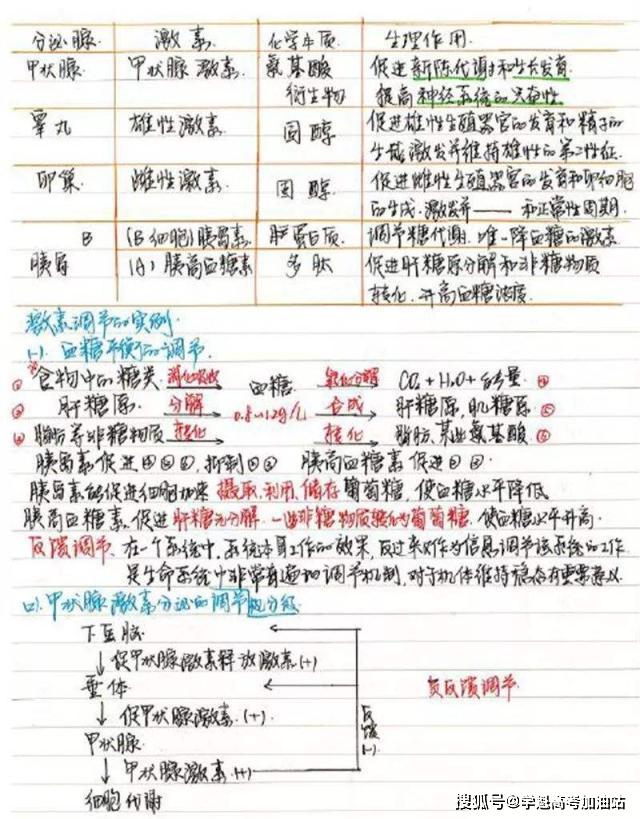 分泌腺 激素 化学本质 生理作用
甲状腺 甲状腺激素 氨基酸 促进新陈代谢和生长发育.
衍生物 提高神经系统的兴奋性
睾丸 雄性激素 固醇 促进雄性生殖器官的发育和精子的
生成激发并维持雄性的第二性征.
卵巢 雌性激素 固醇 促进雌性生殖器官的发育和卵细胞
的生成.激发并——和正常性周期.
B (B细胞)胰岛素 蛋白质. 调节糖代谢.唯一降血糖的激素
胰岛 (A)胰高血糖素 多肽 促进肝糖原分解和非糖物质
转化.升高血糖浓度.
激素调节的实例.
(一).血糖平衡的调节.
① 食物中的糖类 消化吸收 血糖 氧化分解 CO₂+H₂O+能量 ④
② 肝糖原 分解 0.8~1.2g/L 合成 肝糖原,肌糖原 ⑤
③ 脂肪等非糖物质 转化 转化 脂肪、某些氨基酸 ⑥
胰岛素促进④⑤⑥,抑制②③ 胰高血糖素促进②③
胰岛素能促进细胞加速摄取,利用,储存葡萄糖,使血糖水平降低
胰高血糖素,促进肝糖元分解.一些非糖物质转化为葡萄糖,使血糖水平升高.
反馈调节、在一个系统中,系统本身工作的效果,反过来又作为信息调节该系统的工作
是生命系统中非常普遍的调节机制,对于机体维持稳态有重要意义.
(二).甲状腺激素分泌的调节
下丘脑
促甲状腺激素释放激素(+)
垂体 负反馈调节
促甲状腺激素.(+) 反馈(-)
甲状腺
甲状腺激素(+)
细胞代谢
搜狐号@学魁高考加油站